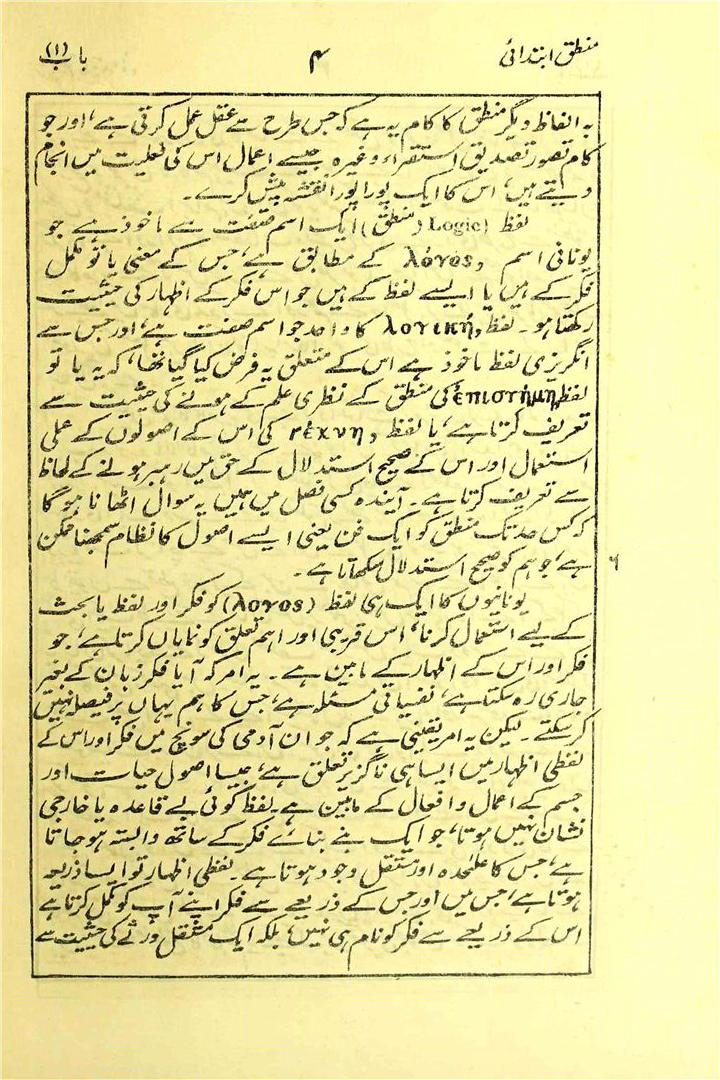 منطق ابتدائی ۴ باب (۱)
بہ الفاظ دیگر منطق کا کام یہ ہے کہ جس طرح سے عقل عمل کرتی ہے، اور جو
کام تصور تصدیق استقراء وغیرہ جیسے اعمال اس کی فعلیت میں انجام
دیتے ہیں، اس کا ایک پورا پورا نقشہ پیش کرے۔
لفظ (Logic (منطق) ایک اسم صفت سے ماخوذ ہے جو
یونانی اسم λόγος, کے مطابق ہے، جس کے معنی یا تو مکمل
فکر کے ہیں یا ایسے لفظ کے ہیں جو اس فکر کے اظہار کی حیثیت
رکھتا ہو۔ لفظ, λογική کا واحد جو اسم صفت ہے، اور جس سے
انگریزی لفظ ماخوذ ہے اس کے متعلق یہ فرض کیا گیا تھا، کہ یہ یا تو
لفظ, ἐπιστήμη کی منطق کے نظری علم کے ہونے کی حیثیت سے
تعریف کرتا ہے، یا لفظ, τέχνη کی اس کے اصولوں کے عملی
استعمال اور اس کے صحیح استدلال کے حق میں رہبر ہونے کے لحاظ
سے تعریف کرتا ہے۔ آیندہ کسی فصل میں ہیں یہ سوال اٹھانا ہو گا
کہ کس حد تک منطق کو ایک فن یعنی ایسے اصول کا نظام سمجھنا ممکن
ہے، جو ہم کو صحیح استدلال سکھاتا ہے۔ ۶
یونانیوں کا ایک ہی لفظ (λογος) کو فکر اور لفظ یا بحث
کے لیے استعمال کرنا، اس قریبی اور اہم تعلق کو نمایاں کرتا ہے، جو
فکر اور اس کے اظہار کے مابین ہے۔ یہ امر کہ آیا فکر زبان کے بغیر
جاری رہ سکتا ہے، نفسیاتی مسئلہ ہے، جس کا ہم یہاں پر فیصلہ نہیں
کر سکتے۔ لیکن یہ امر یقینی ہے کہ جوان آدمی کی سونچ میں فکر اور اس کے
لفظی اظہار میں ایسا ہی ناگزیر تعلق ہے، جیسا اصول حیات اور
جسم کے اعمال و افعال کے مابین ہے۔ لفظ کوئی بے قاعدہ یا خارجی
نشان نہیں ہوتا، جو ایک بنے بنائے فکر کے ساتھ وابستہ ہو جاتا
ہے، جس کا علٰحدہ اور مستقل وجود ہوتا ہے۔ لفظی اظہار تو ایسا ذریعہ
ہوتا ہے، جس میں اور جس کے ذریعے سے فکر اپنے آپ کو مکمل کرتا ہے
اس کے ذریعے سے فکر کو نام ہی نہیں، بلکہ ایک مستقل ورثے کی حیثیت سے